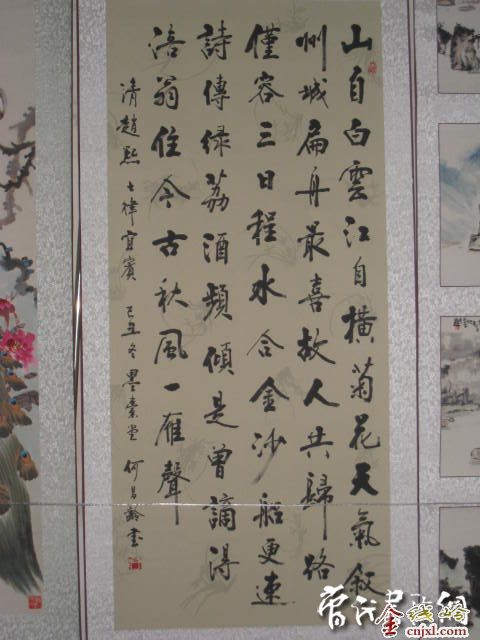 山自白雲江自橫菊花天氣敘
州城扁舟最喜故人共歸路
僅容三日程水合金沙船更速
詩傳綠荔酒頻傾是曾謫得
涪翁住今古秋風一雁聲
清趙熙七律宜賓 己丑冬墨堂 何昌齡書